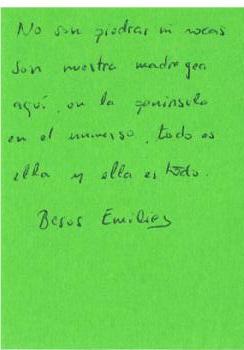 No son piedras ni rocas
son nuestra madre gea
aquí, en la península
en el universo, todo es
ella y ella es todo.
Besos Emilia